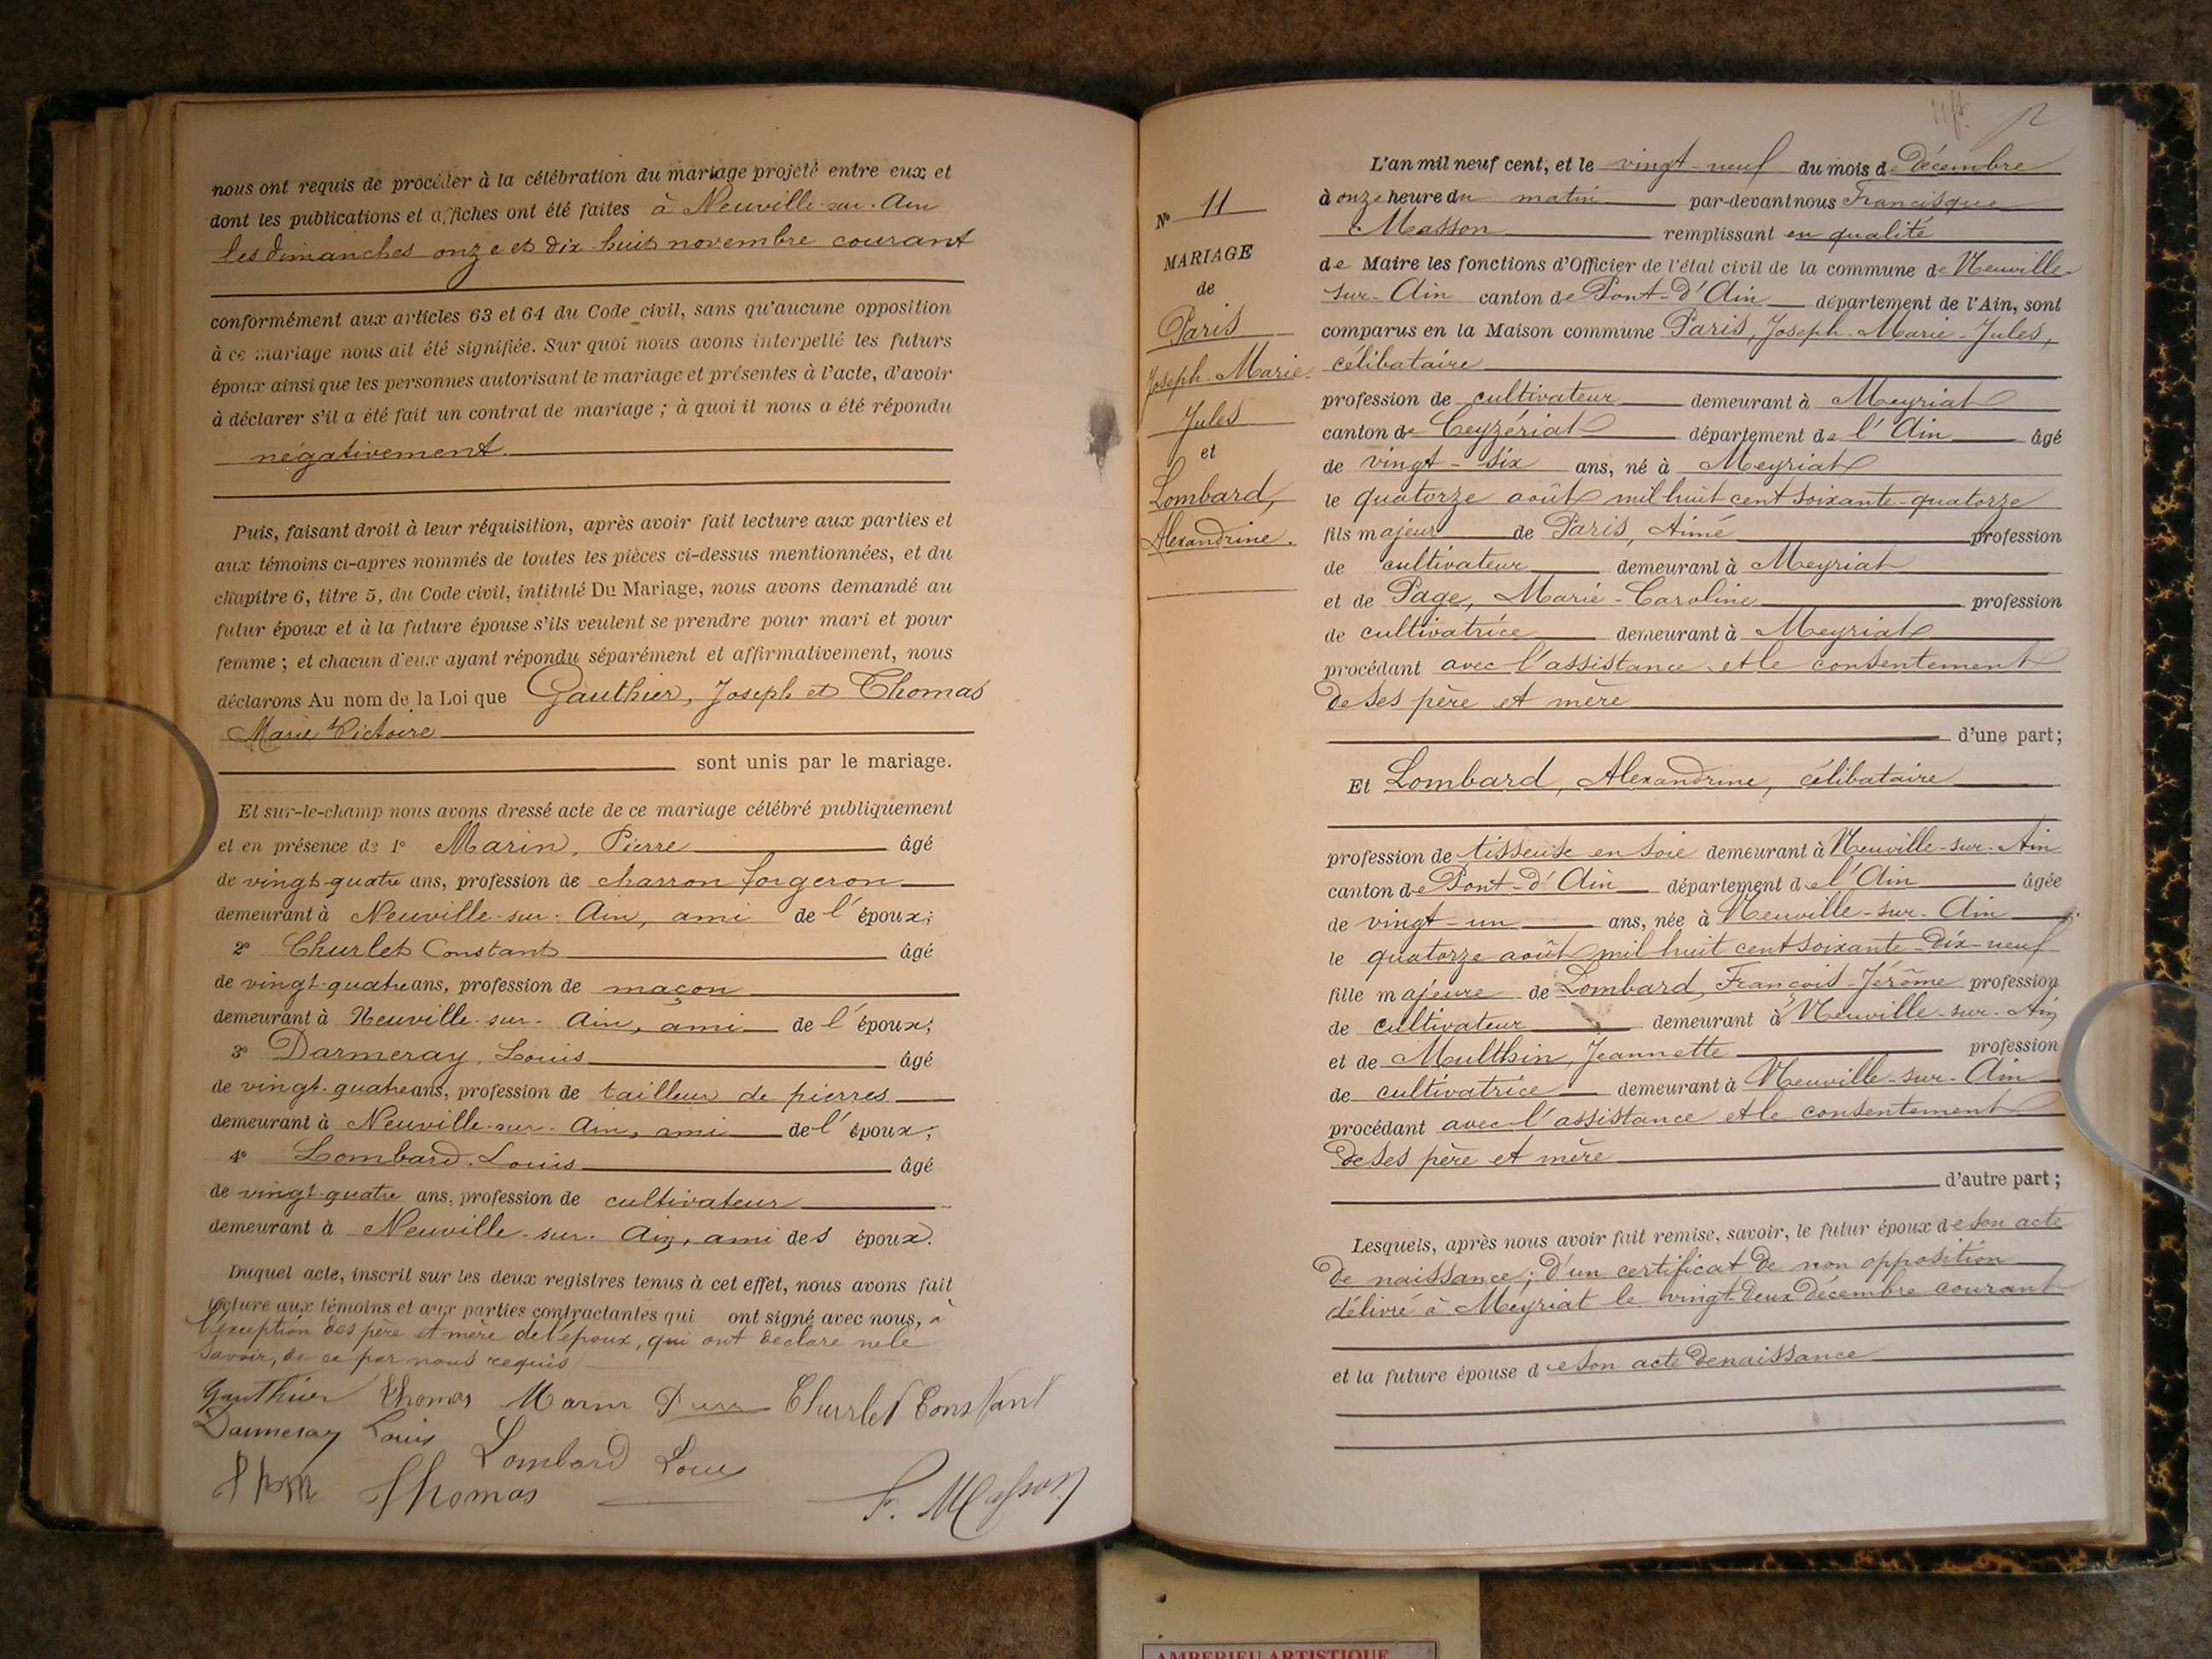 nous ont requis de procéder à la célébration du mariage projeté entre eux et
dont les publications et affiches ont été faites à Neuville-sur-Ain
les dimanches onze et dix-huit novembre courant
conformément aux articles 63 et 64 du Code civil, sans qu'aucune opposition
à ce mariage nous ait été signifiée. Sur quoi nous avons interpellé les futurs
époux ainsi que les personnes autorisant le mariage et présentes à l'acte, d'avoir
à déclarer s'il a été fait un contrat de mariage ; à quoi il nous a été répondu
négativement.
Puis, faisant droit à leur réquisition, après avoir fait lecture aux parties et
aux témoins ci-apres nommés de toutes les pièces ci-dessus mentionnées, et du
chapitre 6, titre 5, du Code civil, intitulé Du Mariage, nous avons demandé au
futur époux et à la future épouse s'ils veulent se prendre pour mari et pour
femme ; et chacun d'eux ayant répondu séparément et affirmativement, nous
déclarons Au nom de la Loi que Gauthier, Joseph et Thomas
Marie Victoire
sont unis par le mariage.
Et sur-le-champ nous avons dressé acte de ce mariage célébré publiquement
et en présence de 1° Marin, Pierre âgé
de vingt-quatre ans, profession de charron forgeron
demeurant à Neuville-sur-Ain, ami de l'époux;
2° Churlet Constant âgé
de vingt-quatre ans, profession de maçon
demeurant à Neuville-sur-Ain, ami de l'époux;
3° Darmeray, Louis âgé
de vingt-quatre ans, profession de tailleur de pierres
demeurant à Neuville-sur-Ain, ami de l'époux;
4° Lombard, Louis âgé
de vingt-quatre ans, profession de cultivateur
demeurant à Neuville-sur-Ain, ami des époux.
Duquel acte, inscrit sur les deux registres tenus à cet effet, nous avons fait
lecture aux témoins et aux parties contractantes qui ont signé avec nous, à
l'exception des père et mère de l'époux, qui ont déclaré ne le
savoir, de ce par nous requis
Gauthier Thomas Marin Pierre Churlet Constant
Darmeray Louis
Lombard Louis
Thomas F. Masson
N° 11
MARIAGE
de
Paris
Joseph-Marie-
Jules
et
Lombard,
Alexandrine.
L'an mil neuf cent, et le vingt-neuf du mois de Décembre
à onze heure du matin par-devant nous Francisque
Masson remplissant en qualité
de Maire les fonctions d'Officier de l'état civil de la commune de Neuville-
sur-Ain canton de Pont-d'Ain département de l'Ain, sont
comparus en la Maison commune Paris, Joseph-Marie-Jules,
célibataire
profession de cultivateur demeurant à Meyriat
canton de Ceyzériat département de l'Ain âgé
de vingt-six ans, né à Meyriat
le quatorze août mil huit cent soixante-quatorze
fils majeur de Paris, Aimé profession
de cultivateur demeurant à Meyriat
et de Page, Marie-Caroline profession
de cultivatrice demeurant à Meyriat
procédant avec l'assistance et le consentement
de ses père et mère
d'une part;
Et Lombard, Alexandrine, célibataire
profession de tisseuse en soie demeurant à Neuville-sur-Ain
canton de Pont-d'Ain département de l'Ain âgée
de vingt-un ans, née à Neuville-sur-Ain
le quatorze août mil huit cent soixante-dix-neuf
fille majeure de Lombard, François-Jérôme profession
de cultivateur demeurant à Neuville-sur-Ain
et de Multhin, Jeannette profession
de cultivatrice demeurant à Neuville-sur-Ain
procédant avec l'assistance et le consentement
de ses père et mère
d'autre part ;
Lesquels, après nous avoir fait remise, savoir, le futur époux de son acte
de naissance; d'un certificat de non opposition
délivré à Meyriat le vingt-deux Décembre courant
et la future épouse de son acte de naissance
AMBERIEU ARTISTIQUE